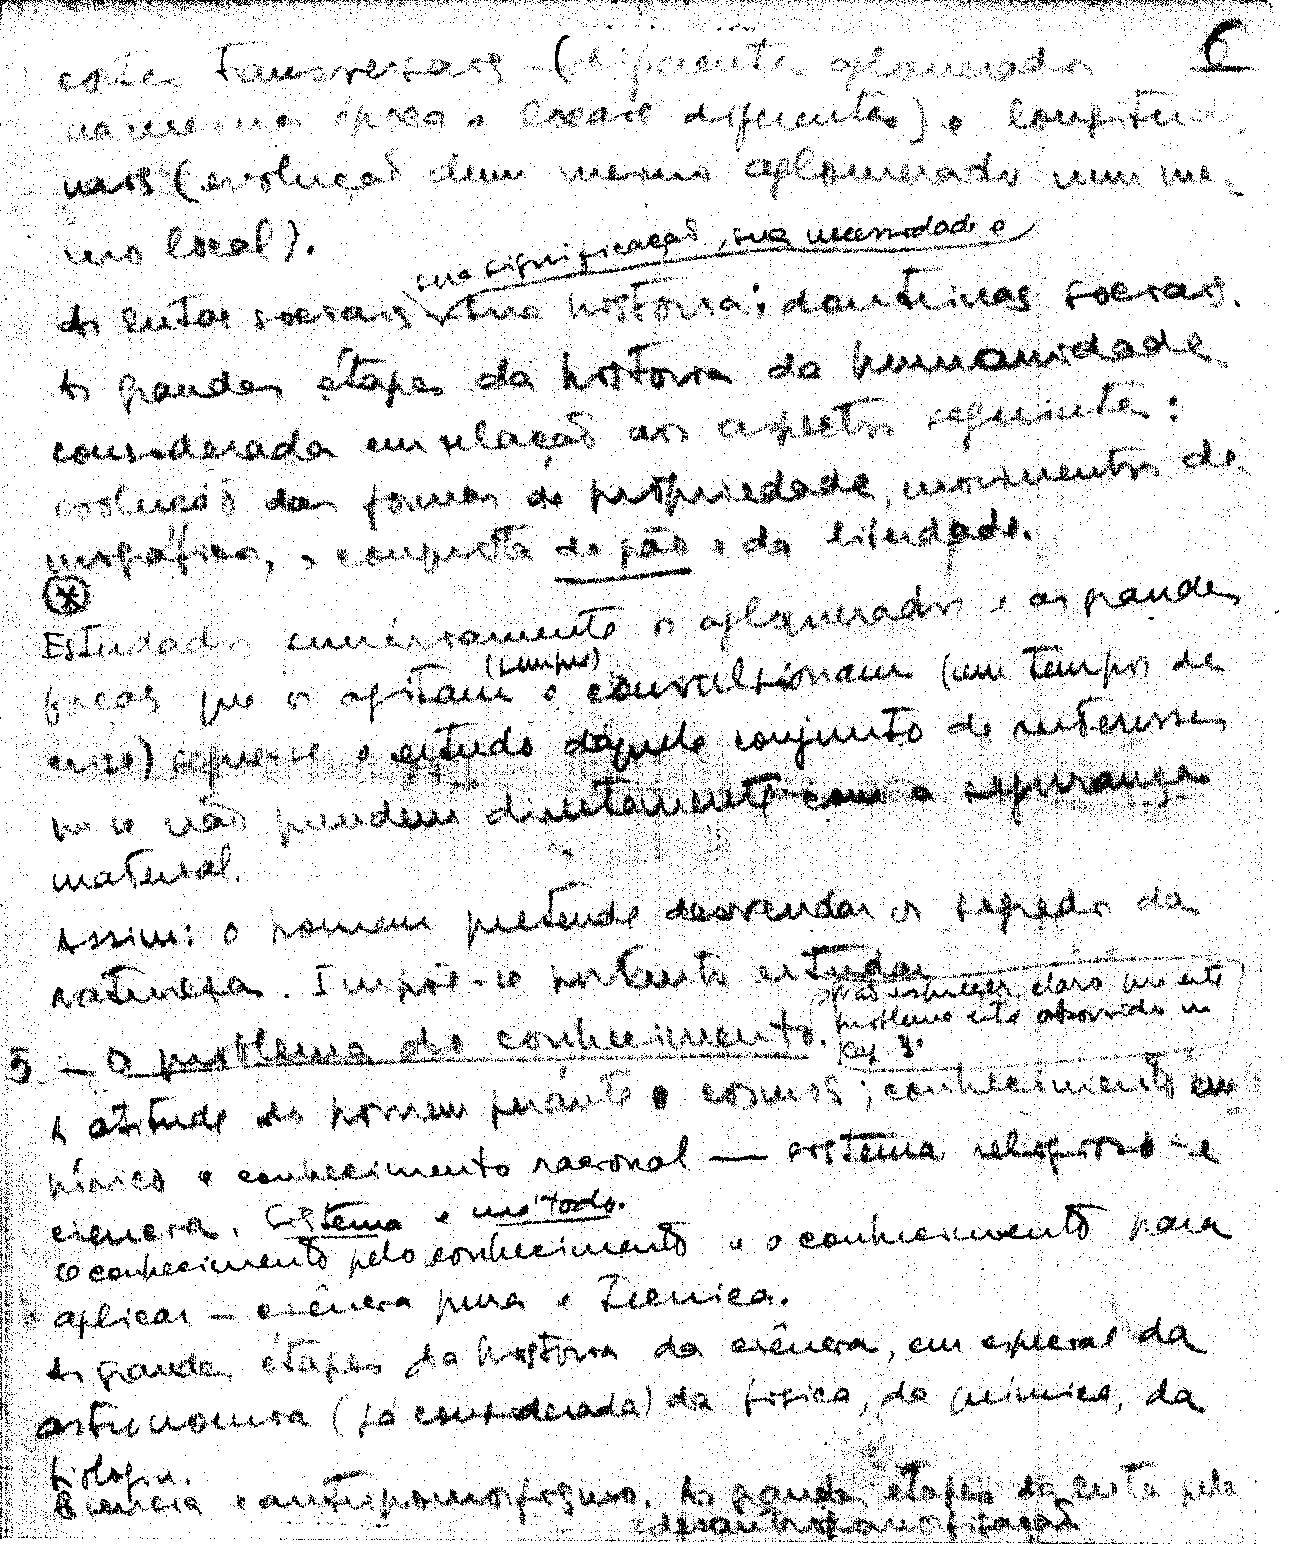 6
cões transversais (diferentes aglomerados
na mesma época e locais diferentes) e longitudi-
nais (evolução dum mesmo aglomerado num mes-
mo local).
sua significação, sua necessidade e
As lutas sociais, sua história; doutrinas sociais.
As grandes étapes da história da humanidade
considerada em relação aos aspectos seguintes:
evolução das formas de propriedade, movimentos de-
mográficos, a conquista do pão e da liberdade.
Estudados os aglomerados e as grandes
forças que os agitam (sempre) e convulsionam (em tempos de
crise) segue-se o estudo daquele conjunto de interesses
que se não prendem directamente com a segurança
material.
Assim: o homem pretende desvendar os segredos da
natureza. Impõe-se portanto estudar
5 – O problema do conhecimento.
não esquecer claro que este
problema está absorvido no
Cap 3º
A atitude do homem perante o cosmos; conhecimento em-
pírico e conhecimento racional — sistema religioso e
ciência. Sistema e método.
O conhecimento pelo conhecimento e o conhecimento para
aplicar – ciência pura e Técnica.
As grandes étapes da história da ciência, em especial da
astronomia (já considerada) da física, da química, da
biologia.
Ciência e antropomorfismo. As grandes étapes da luta pela
desantropomorfização